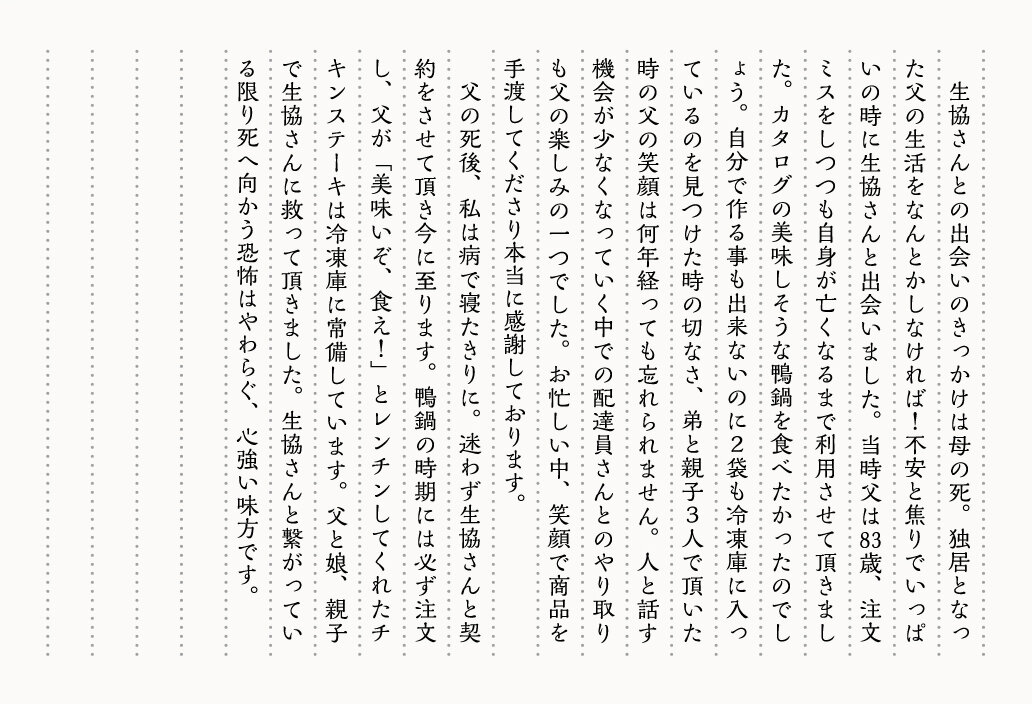 生協さんとの出会いのきっかけは母の死。独居となっ
た父の生活をなんとかしなければ！不安と焦りでいっぱ
いの時に生協さんと出会いました。当時父は83歳、注文
ミスをしつつも自身が亡くなるまで利用させて頂きまし
た。カタログの美味しそうな鴨鍋を食べたかったのでし
ょう。自分で作る事も出来ないのに２袋も冷凍庫に入っ
ているのを見つけた時の切なさ、弟と親子３人で頂いた
時の父の笑顔は何年経っても忘れられません。人と話す
機会が少なくなっていく中での配達員さんとのやり取り
も父の楽しみの一つでした。お忙しい中、笑顔で商品を
手渡してくださり本当に感謝しております。
父の死後、私は病で寝たきりに。迷わず生協さんと契
約をさせて頂き今に至ります。鴨鍋の時期には必ず注文
し、父が「美味いぞ、食え！」とレンチンしてくれたチ
キンステーキは冷凍庫に常備しています。父と娘、親子
で生協さんに救って頂きました。生協さんと繋がってい
る限り死へ向かう恐怖はやわらぐ、心強い味方です。